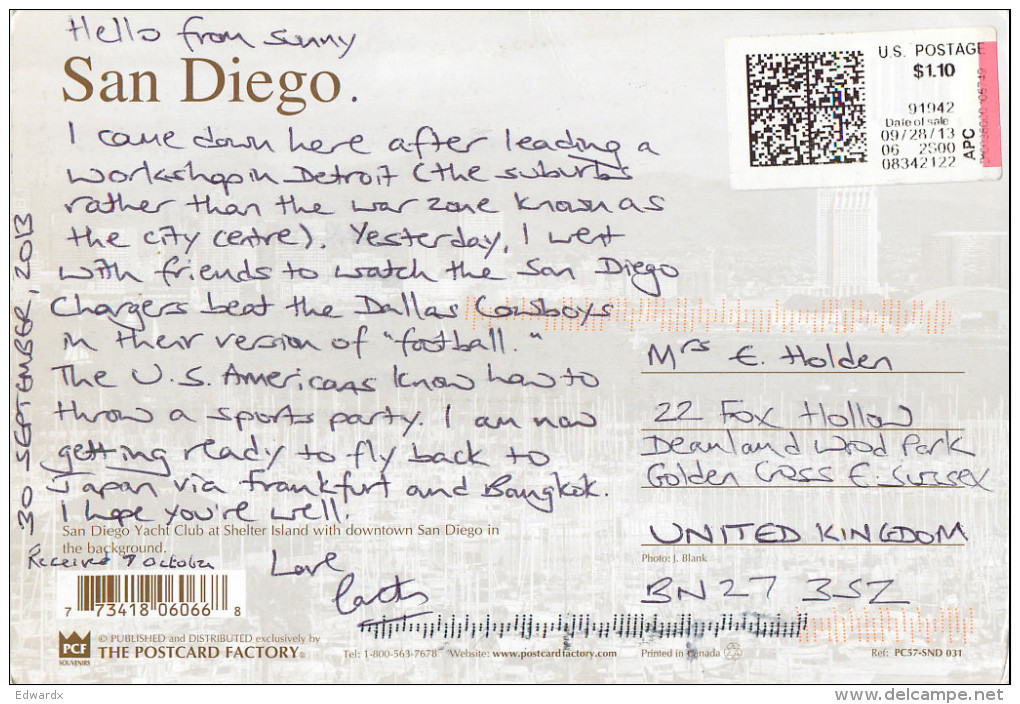 Hello from sunny
San Diego.
I came down here after leading a
workshop in Detroit (the suburbs
rather than the war zone known as
the city centre). Yesterday, I went
with friends to watch the San Diego
Chargers beat the Dallas Cowboys
in their version of "football."
The U.S. Americans know how to
throw a sports party. I am now
getting ready to fly back to
Japan via Frankfurt and Bangkok.
I hope you're well!
Love
30 SEPTEMBER, 2013
Received 7 October
U.S. POSTAGE
$1.10
91942
Date of sale
09/28/13
06 2S00
08342122
APC
Mrs E. Holden
22 Fox Hollow
Deanland Wood Park
Golden Cross E. Sussex
UNITED KINGDOM
BN27 3SZ
San Diego Yacht Club at Shelter Island with downtown San Diego in
the background.
Photo: J. Blank
7 73418 06066 8
PCF
SOUVENIRS
© PUBLISHED and DISTRIBUTED exclusively by
THE POSTCARD FACTORY®
Tel: 1-800-563-7678 Website: www.postcardfactory.com Printed in Canada
Ref: PC57-SND 031
Edwardx
www.delcampe.net